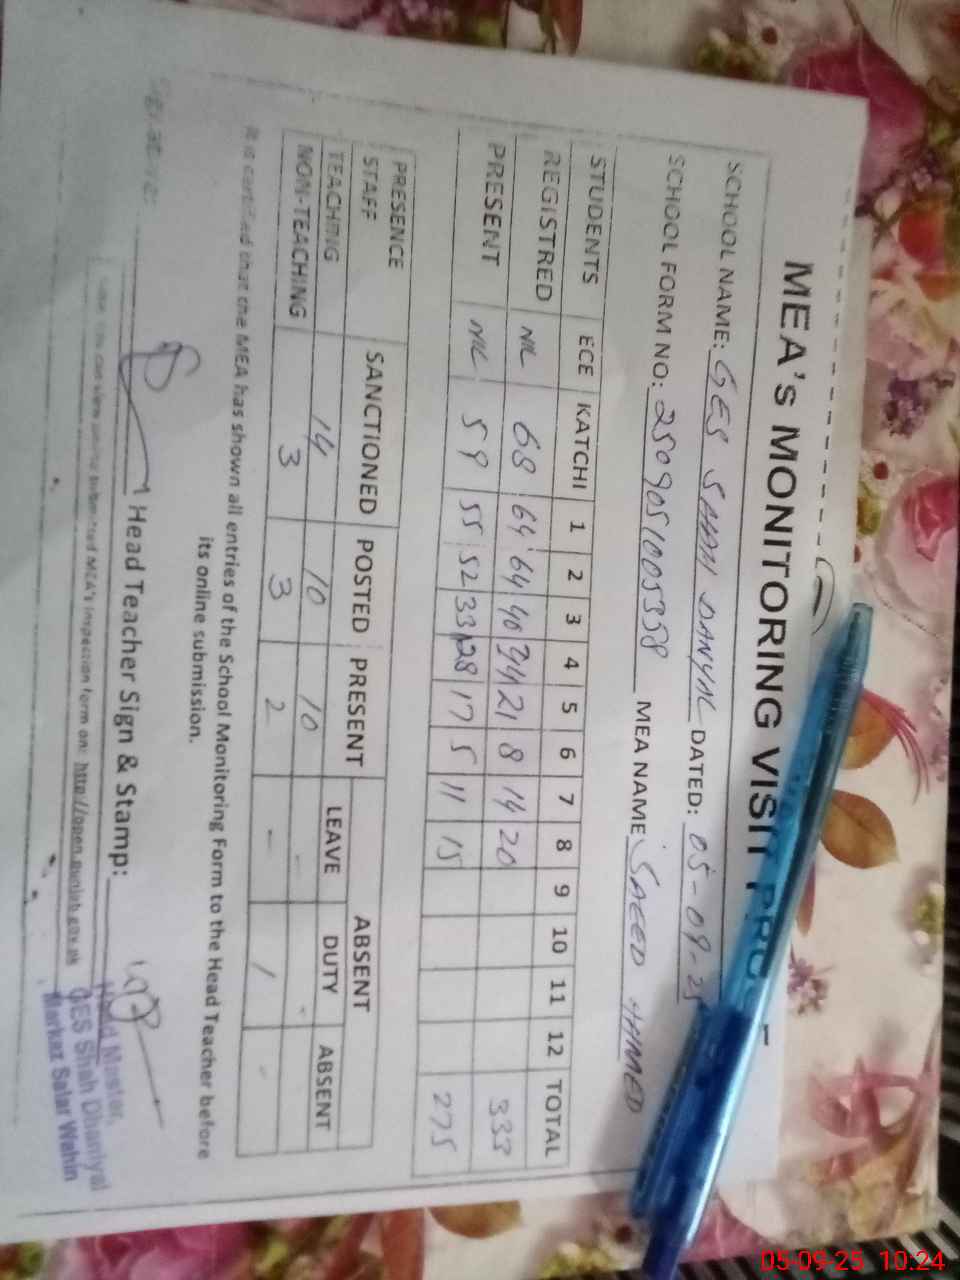 MEA's MONITORING VISIT PRO
SCHOOL NAME: GES SHAH DANYAL DATED: 05-09-25
SCHOOL FORM NO: 2509051005358 MEA NAME SAEED AHMED
STUDENTS ECE KATCHI 1 2 3 4 5 6 7 8 9 10 11 12 TOTAL
REGISTRED NIL 68 64 64 40 34 21 8 14 20 333
PRESENT NIL 59 55 52 33 28 17 5 11 15 275
PRESENCE ABSENT
STAFF SANCTIONED POSTED PRESENT LEAVE DUTY ABSENT
TEACHING 14 10 10 - - 
NON-TEACHING 3 3 2 - 1 -
It is certified that the MEA has shown all entries of the School Monitoring Form to the Head Teacher before
its online submission.
Head Teacher Sign & Stamp:
Head Master,
GES Shah Dhaniyal
Markaz Salar Wahin
MEA's inspection form on: http://open.punjab.gov.pk
05-09-25 10:24